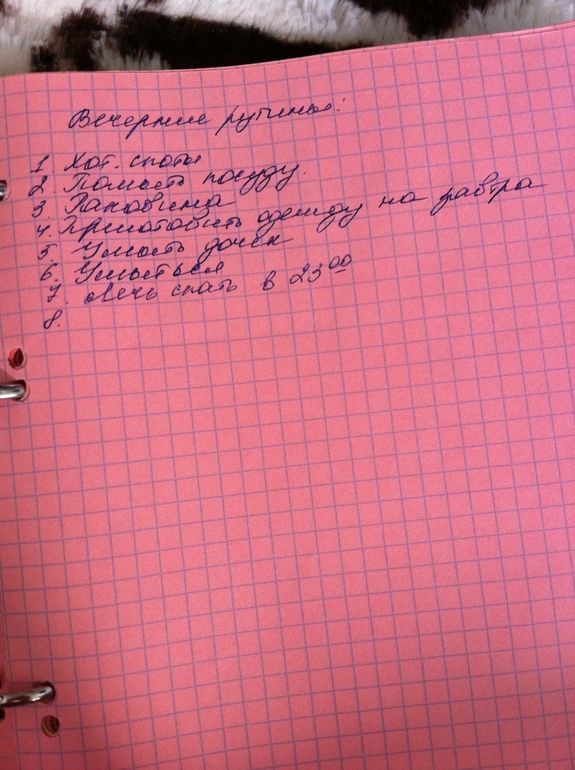 Вечерние рутины:
1. Хот. споты
2. Помыть посуду.
3. Раковина
4. Приготовить одежду на завтра
5. Умыть дочек
6. Умыться
7. Лечь спать в 23⁰⁰
8.